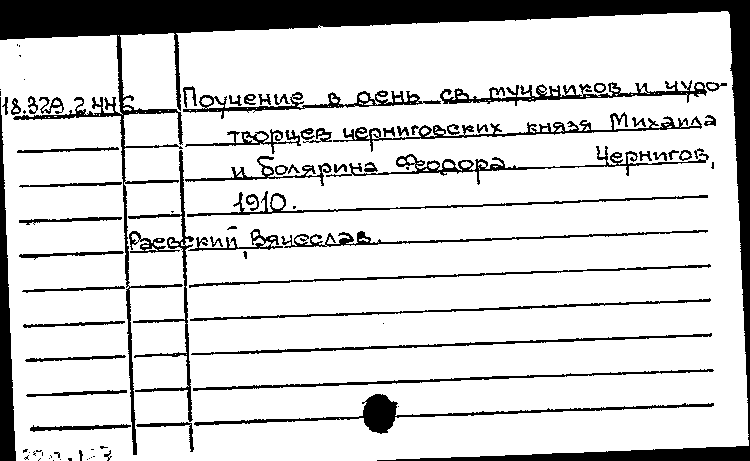 18.329.2.446. Поучение в день св. мучеников и чудо-
творцев черниговских князя Михаила
и болярина Феодора. Чернигов,
1910.
Раевский, Вячеслав.